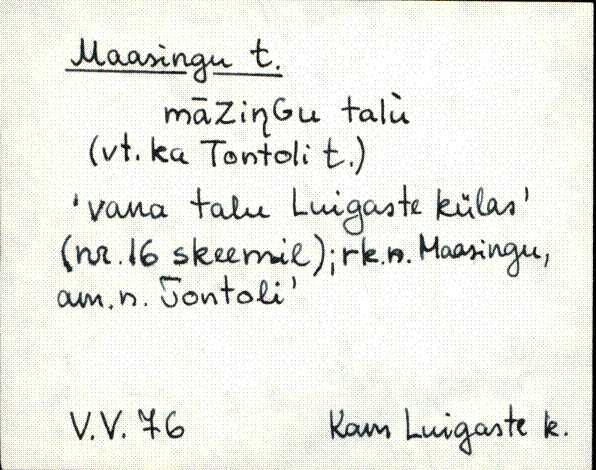 Maasingu t.
māZiŋGu talù
(vt. ka Tontoli t.)
'vana talu Luigaste külas'
(nr. 16 skeemil); rk.n. Maasingu,
am. n. Tontoli'
V.V. 76 Kam Luigaste k.